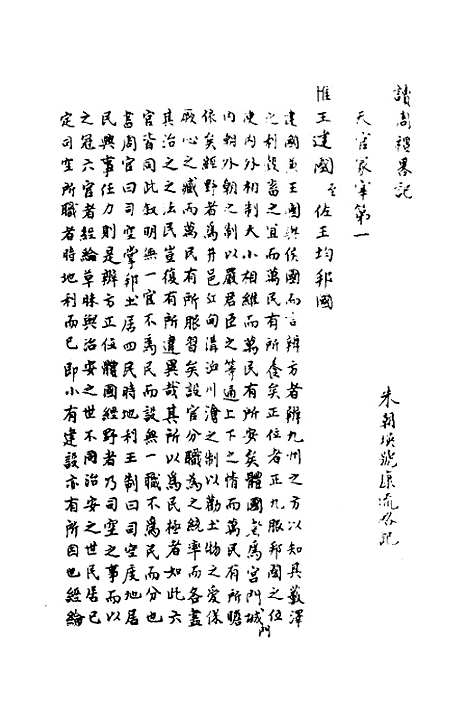 讀周禮畧記
朱朝瑛號康流畧記
天官冢宰第一
惟王建國至佐王均邦國
建國兼王國與侯國而言辨方者辨九州之方以知其藪澤
之利後畜之宜而萬民有所養矣正位者正九服邦國之位
使內外相制大小相維而萬民有所安矣體國者為宮門城門
內朝外朝之制以嚴君臣之等通上下之情而萬民有所瞻
依矣經野者為井邑丘甸溝洫川澮之制以勸土物之愛保
厥心之臧而萬民有所服習矣設官分職為之統率而各盡
其治之之法民豈復有所違異哉其所以為民極者如此六
官皆同此敘明無一官不為民而設無一職不為民而分也
書周官曰司空掌邦土居四民時地利王制曰司空度地居
民興事任力則是辨方正位體國經野者乃司空之事而以
之冠六官者經綸草昧與治安之世不同治安之世民居已
定司空所職者時地利而已即小有建設亦有所因也經綸